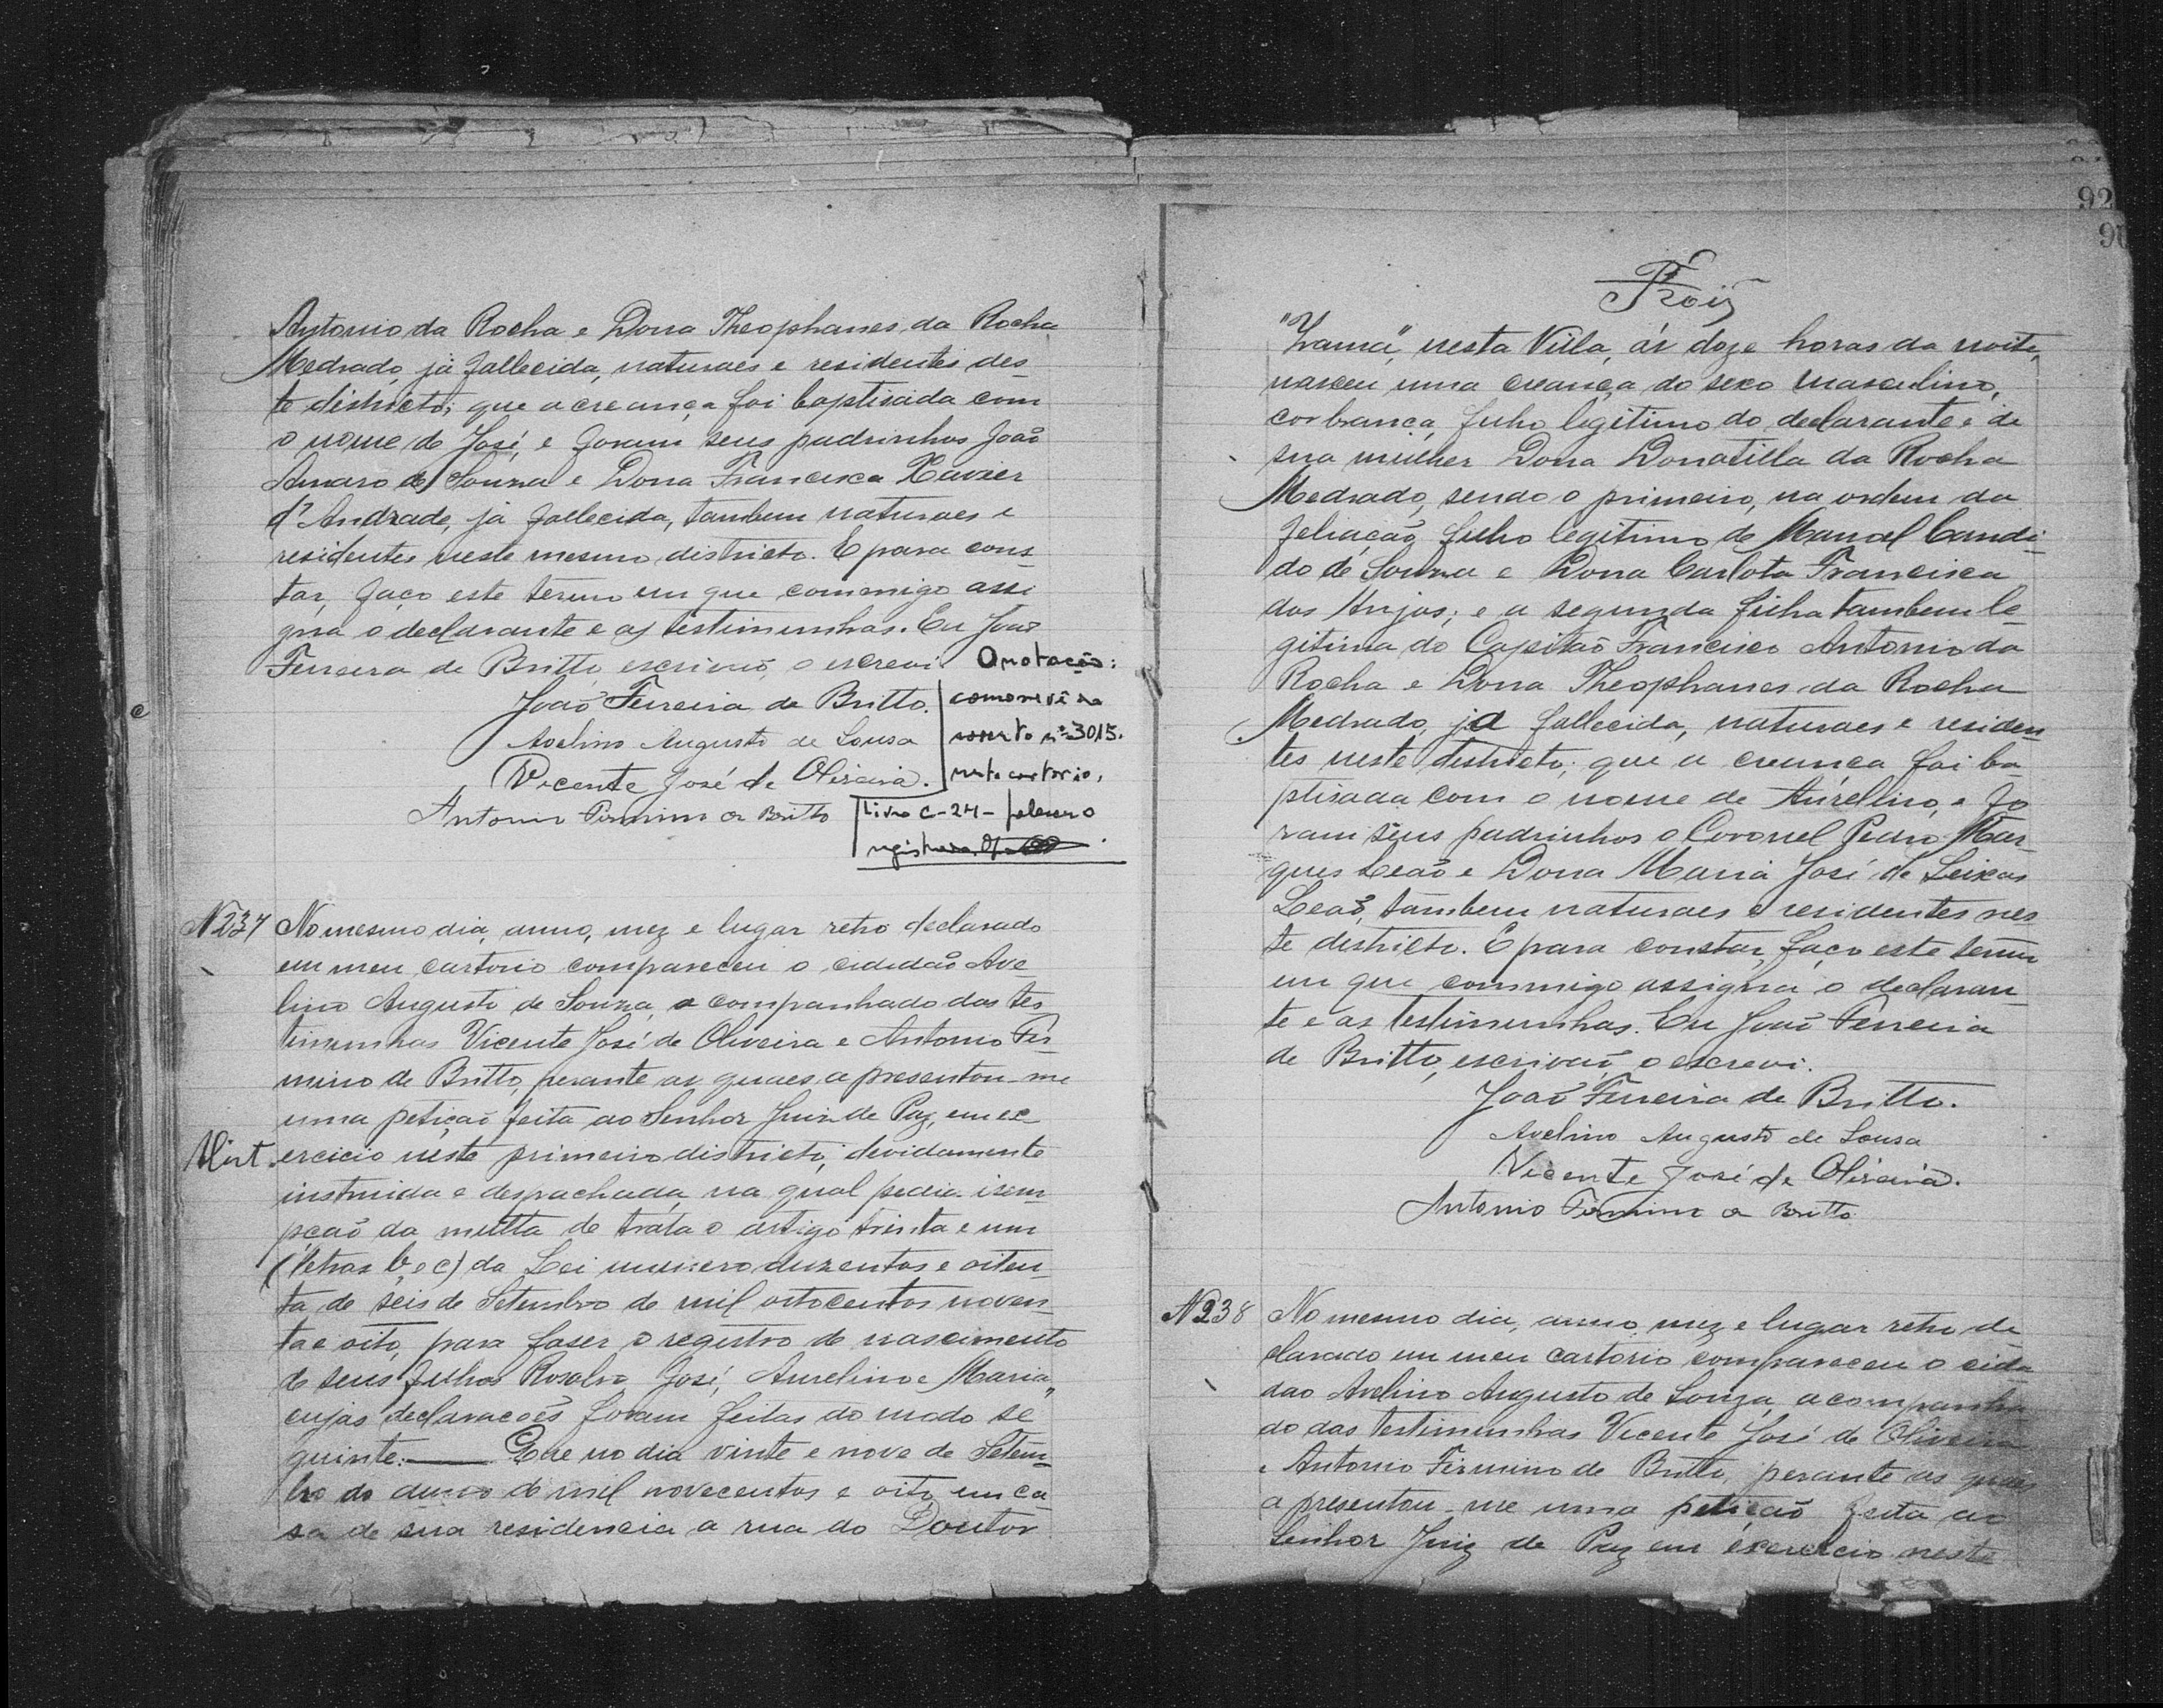 Antonio da Rocha e Dona Theophanes da Rocha
Medrado, já fallecida, naturaes e residentes des-
te districto; que a creança foi baptisada com
o nome de José, e foram seus padrinhos João
Amaro de Souza e Dona Francisca Xavier
d'Andrade, já fallecida, tambem naturaes e
residentes neste mesmo districto. E para cons-
tar, faço este termo em que commigo assi
gna o declarante e as testimunhas. Eu João
Ferreira de Britto, escrivaõ, o escrevi.
João Ferreira de Britto.
Avelino Augusto de Sousa
Vicente José de Oliveira.
Antonio Firmino de Britto
Anotação:
nº 3015.
neste cartorio,
Livro C-24 - faleceu o
registrado.
N 237 No mesmo dia, anno, mez e lugar retro declarado
em meu cartorio compareceu o cidadão Ave-
lino Augusto de Souza, acompanhado das tes
timunhas Vicente José de Oliveira e Antonio Fir-
mino de Britto, perante as quaes apresentou-me
uma petiçaõ feita ao Senhor Juiz de Paz, em ex-
ercicio néste primeiro districto, devidamente
instruida e despachada, na qual pedia isem-
pçaõ da multa de trata o artigo trinta e um
(letras b e c) da Lei numero duzentos e oiten-
ta de seis de Setembro de mil oitocentos noven-
ta e oito, para faser o registro de nascimento
de seus filhos Rosalvo, José, Aurelino e Maria,
cujas declaracoẽs foram feitas do modo se
guinte: — Que no dia vinte e nove de Setem-
bro do anno de mil novecentos e oito, em ca-
sa de sua residencia a rua do Doutor
92
Fróis
nesta Villa, ás doze horas da noite,
nasceu uma creança do sexo masculino,
cor branca, filho legitimo do declarante e de
sua mulher Dona Donatilla da Rocha
Medrado, sendo o primeiro, na ordem da
feliação, filho legitimo de Manoel Candi-
do de Souza e Dona Carlota Francisca
dos Anjos; e a segunda filha tambem le
gitima do Capitão Francisco Antonio da
Rocha e Dona Theophanes da Rocha
Medrado, já fallecida, naturaes e residen
tes neste districto; que a creança foi ba-
ptisada com o nome de Aurelino, e fo
ram seus padrinhos o Coronel Pedro Mar-
ques Leaõ e Dona Maria José de Seixas
Leaõ, tambem naturaes e residentes nes
te districto. E para constar, faço este termo
em que commigo assigna o declaran-
te e as testimunhas. Eu João Ferreira
de Britto, escrivaõ, o escrevi.
João Ferreira de Britto.
Avelino Augusto de Sousa
Vicente José de Oliveira.
Antonio Firmino de Britto
N 238 No mesmo dia, anno, mez e lugar retro de
clarado em meu cartorio compareceu o cida
dao Avelino Augusto de Souza, acompanha
do das testimunhas Vicente José de Oliveira
e Antonio Firmino de Britto, perante as quaes
apresentou-me uma petição feita ao
Senhor Juiz de Paz em exercicio neste